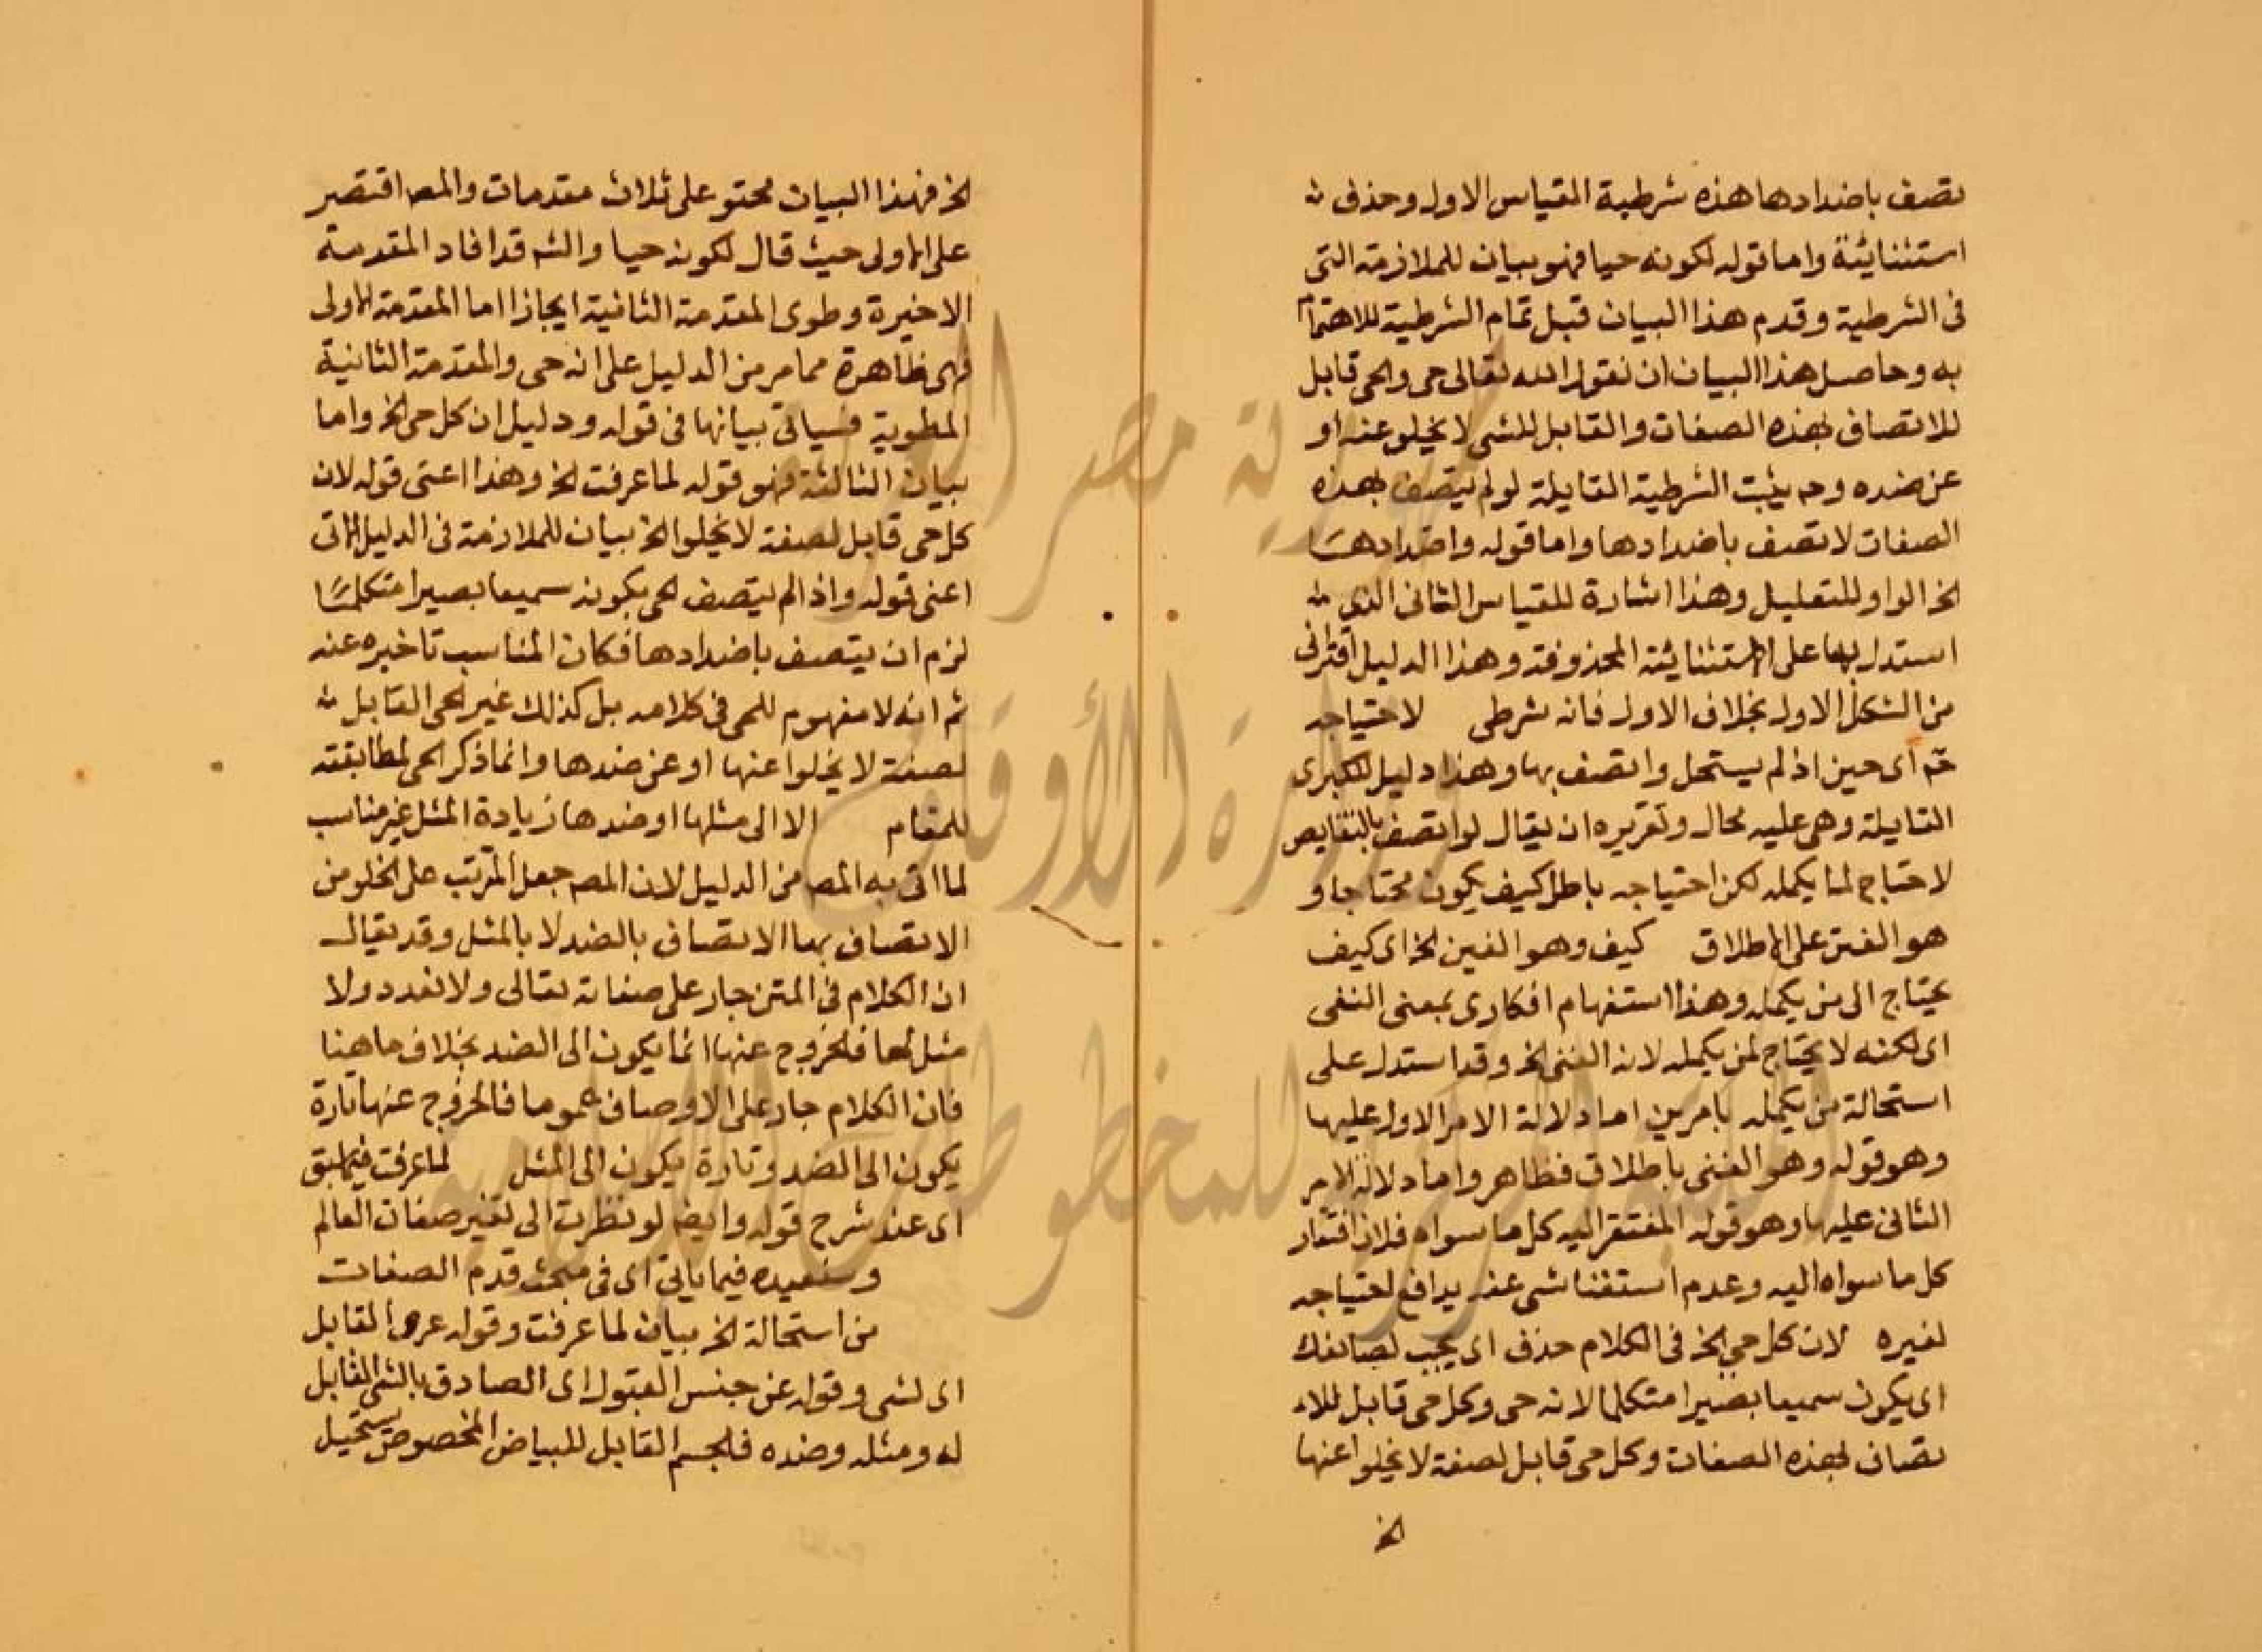 تصف باضدادها هذه شرطية القياس الاول وحذف
استثنايئة واما قوله لكونه حيا فهو بيان للملازمة التى
فى الشرطية وقدم هذا البيان قبل تمام الشرطية للاهتمام
به وحاصل هذا البيان ان نقول الله تعالى حى والحى قابل
للاتصاف بهذه الصفات والقابل للشى لا يخلو عنه او
عن ضده وح يثبت الشرطية القايلة لو لم يتصف بهذه
الصفات لاتصف باضدادها واما قوله واضدادها
الخ الواو للتعليل وهذا اشارة للقياس الثانى الذى
استدل بها على الاستثنايئة المحذوفة وهذا الدليل اقترانى
من الشكل الاول بخلاف الاول فانه شرطى لاحتياجه
ح اى حين اذ لم يستحل واتصف بها وهذا دليل للكبرى
القايلة وهى عليه محال وتقريره ان يقال لو اتصف بالنقايص
لاحتاج لما يكمله لكن احتياجه باطل كيف يكون محتاجا و
هو الغنى على الاطلاق كيف وهو الغين الخ اى كيف
يحتاج الى من يكمله وهذا استفهام انكارى بمعنى النفى
اى لكنه لا يحتاج لمن يكمله لانه الغنى الخ وقد استدل على
استحالة من يكمله بامرين اما دلالة الامر الاول عليها
وهو قوله وهو الغنى باطلاق فظاهر واما دلالة الامر
الثانى عليها وهو قوله المفتقر اليه كل ما سواه فلان افتقار
كل ما سواه اليه وعدم استغنا شى عنه يدافع احتياجه
لغيره لان كل حى الخ فى الكلام حذف اى يجب لصانعك
اى يكون سميعا بصيرا متكلما لانه حى وكل حى قابل للا
تصاف بهذه الصفات وكل حى قابل لصفة لا يخلوا عنها
الخ
الخ فهذا البيان محتو على ثلاث مقدمات والمص اقتصر
على الاولى حيث قال لكونه حيا والش قد افاد المقدمة
الاخيرة وطوى المقدمة الثانية ايجازا اما المقدمة الاولى
فهى ظاهرة مما مر من الدليل على انه حى والمقدمة الثانية
المطوية فسياتى بيانها فى قوله ودليل ان كل حى الخ واما
بيان الثالثة فهو قوله لما عرفت الخ وهذا اعنى قوله لان
كل حى قابل لصفة لا يخلوا الخ بيان للملازمة فى الدليل الاتى
اعنى قوله واذا لم يتصف الحى بكونه سميعا بصيرا متكلما
لزم ان يتصف باضدادها فكان المناسب تاخيره عنه
ثم انه لا مفهوم للحى فى كلامه بل كذلك غير الحى القابل
لصفة لا يخلوا عنها او عن ضدها وانما ذكر الحى لمطابقته
للمقام الا الى مثلها او ضدها زيادة المثل غير مناسب
لما اتى به المص من الدليل لان المص جعل المرتب على الخلو من
الاتصاف بها الاتصاف بالضد لا بالمثل وقد يقال
ان الكلام فى المتن جار على صفاته تعالى ولا تعدد ولا
مثل لها فالخروج عنها انما يكون الى الضد بخلاف ما هنا
فان الكلام جار على الاوصاف عموما فالخروج عنها تارة
يكون الى الضد وتارة يكون الى المثل لما عرفت فيما سبق
اى عند شرح قوله وايضا لو نظرت الى تغير صفات العالم
وسنعيده فيما ياتى اى فى مبحث قدم الصفات
من استحالة الخ بيان لما عرفت وقوله عرى القابل
اى لشى وقوله عن جنس القبول اى الصادق بالشى القابل
له ومثله وضده فالجسم القابل للبياض المخصوص يستحيل